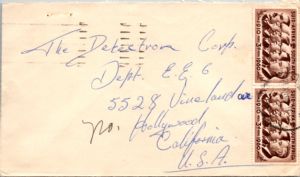 The Detectron Corp.
Dept. E.E 6
5528 Vineland ave
No. Hollywood
California
U.S.A.